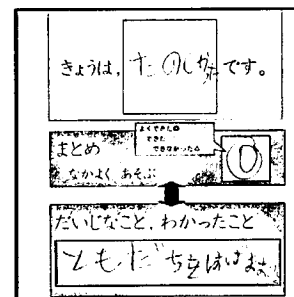 きょうは、たのしかったです。
よくできた◎
できた○
できなかった△
まとめ
なかよく あそぶ
だいじなこと、わかったこと
ともだち